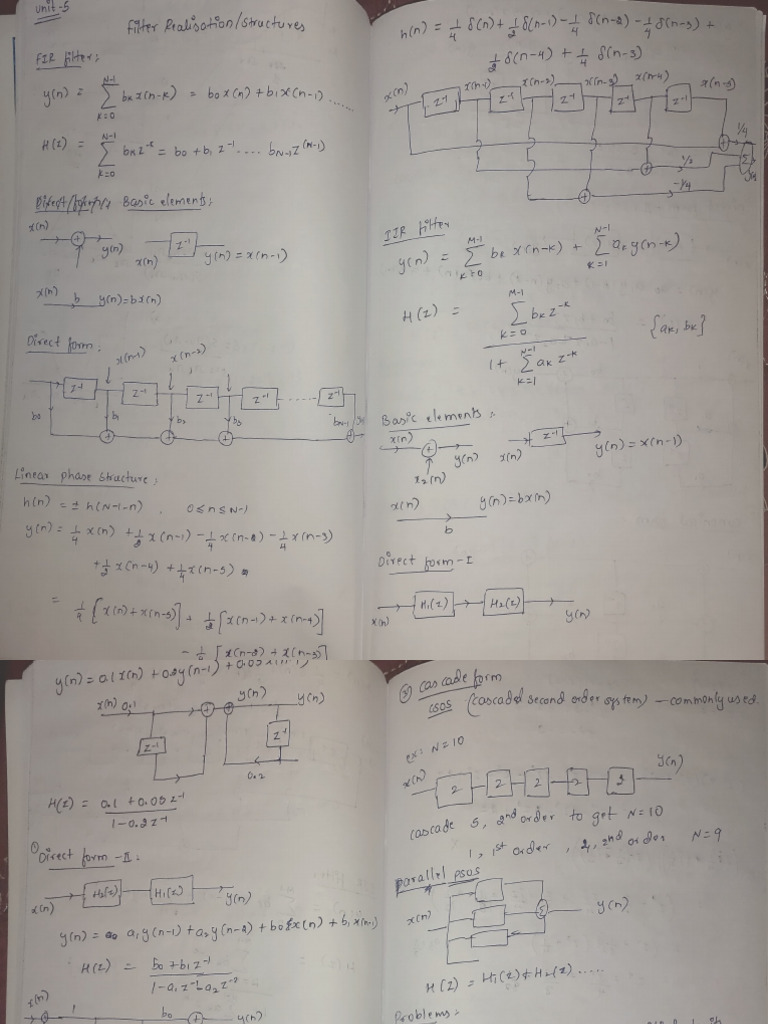 unit-5
Filter Realisation/structures
FIR filter:
y(n) = Σ_{k=0}^{N-1} bk x(n-k) = b0 x(n) + b1 x(n-1) ......
H(z) = Σ_{k=0}^{N-1} bk z^-k = b0 + b1 z^-1 ..... bN-1 z^(N-1)
Basic elements:
x(n) y(n) x(n) z^-1 y(n) = x(n-1)
x(n) b y(n) = bx(n)
Direct form:
x(n-1) x(n-2)
z^-1 z^-1 z^-1 z^-1 ...... z^-1
b0 b1 b2 b3 bN-1
Linear phase structure:
h(n) = ± h(N-1-n) , 0≤n≤N-1
y(n) = 1/4 x(n) + 1/2 x(n-1) - 1/4 x(n-2) - 1/4 x(n-3)
+ 1/2 x(n-4) + 1/4 x(n-5)
= 1/4 [x(n) + x(n-5)] + 1/2 [x(n-1) + x(n-4)]
- 1/4 [x(n-2) + x(n-3)]
h(n) = 1/4 δ(n) + 1/2 δ(n-1) - 1/4 δ(n-2) - 1/4 δ(n-3) +
1/2 δ(n-4) + 1/4 δ(n-3)
x(n) x(n-1) x(n-2) x(n-3) x(n-4) x(n-5)
z^-1 z^-1 z^-1 z^-1 z^-1
1/4
1/2 Σ
-1/4
IIR filter
y(n) = Σ_{k=0}^{M-1} bk x(n-k) + Σ_{k=1}^{N-1} ak y(n-k)
H(z) = Σ_{k=0}^{M-1} bk z^-k / 1 + Σ_{k=1}^{N-1} ak z^-k {ak, bk}
Basic elements:
x(n) y(n) x(n) z^-1 y(n) = x(n-1)
x2(n)
x(n) y(n) = bx(n)
b
Direct form-I
x(n) H1(z) H2(z) y(n)
y(n) = 0.1x(n) + 0.2y(n-1) +
x(n) 0.1 y(n) y(n)
z^-1 z^-1
0.2
H(z) = 0.1 + 0.05z^-1 / 1-0.2z^-1
① Direct form-II:
x(n) H2(z) H1(z) y(n)
y(n) = a1 y(n-1) + a2 y(n-2) + b0 x(n) + b1 x(n-1)
H(z) = b0 + b1 z^-1 / 1-a1 z^-1-a2 z^-2
x(n) 1 b0 y(n)
cascade form
CSOS (cascaded second order system) — commonly used.
ex: N=10
x(n) 2 2 2 2 2 y(n)
cascade 5, 2nd order to get N=10
1, 1st order, 4, 2nd order N=9
parallel PSOS
x(n) Σ y(n)
H(z) = H1(z) + H2(z) .....
Problems: